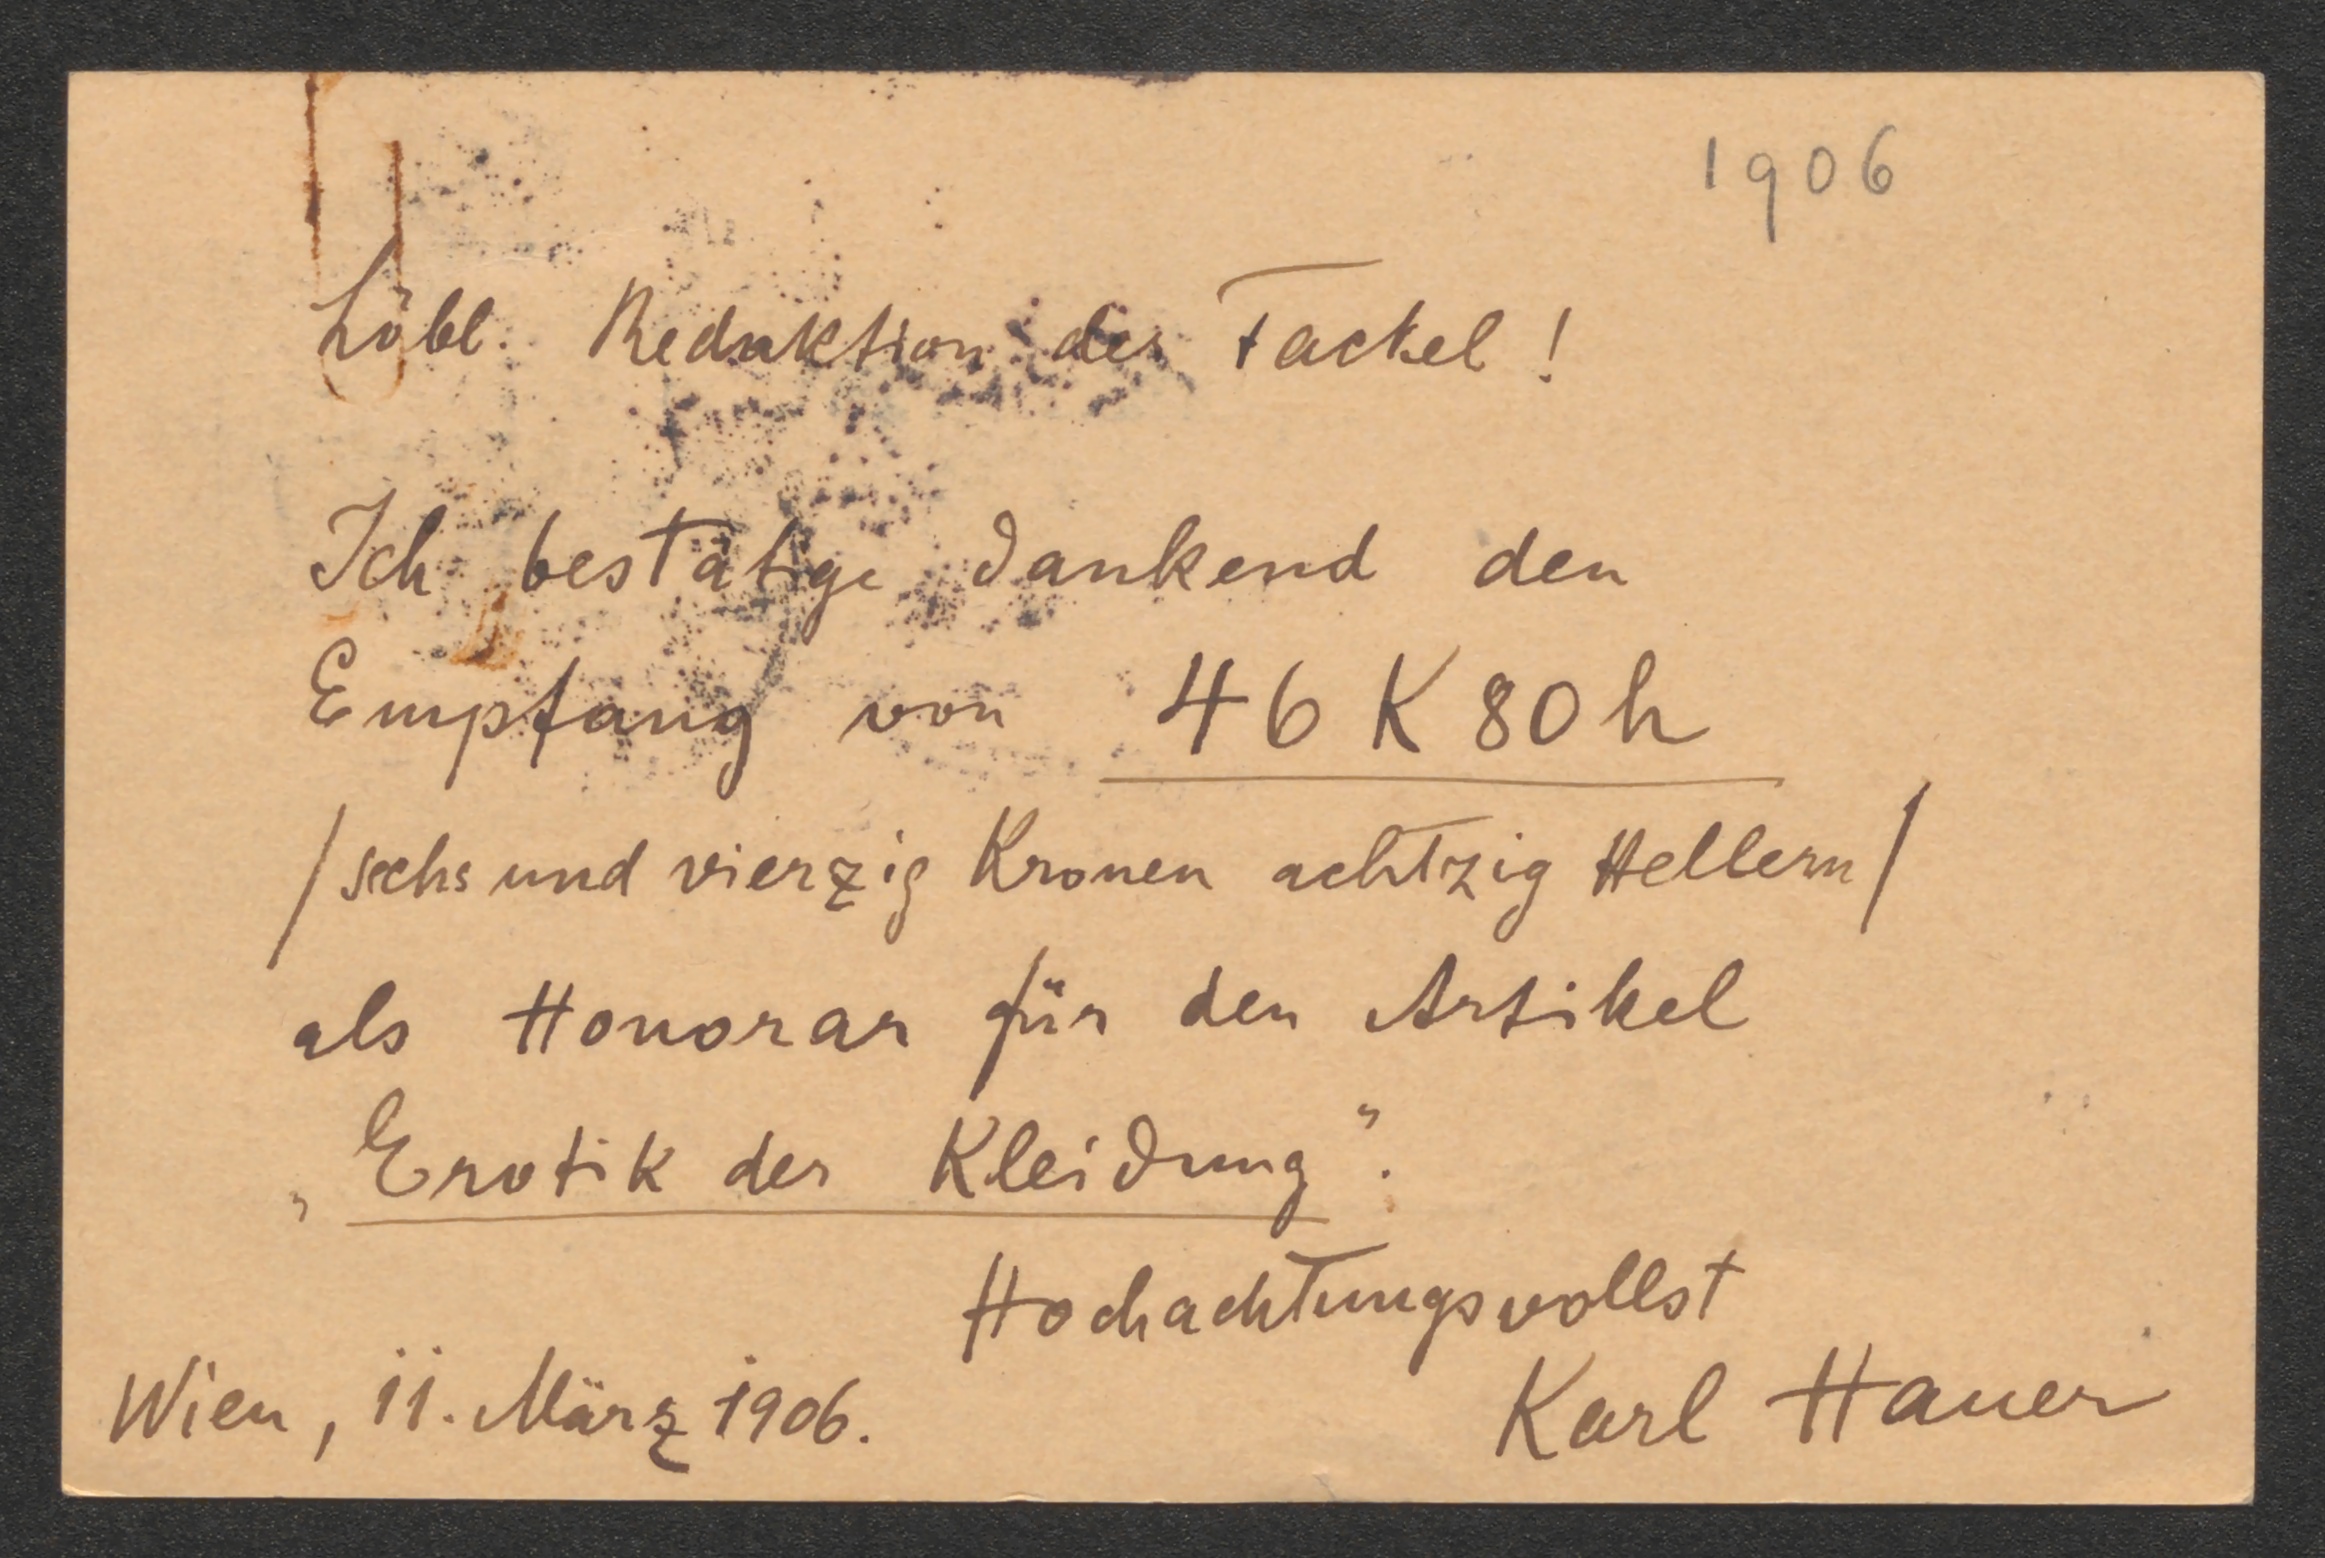 1906
Löbl. Redaktion der Fackel!
Ich bestätige dankend den
Empfang von 46 K 80 h
/sechs und vierzig Kronen achtzig Hellern/
als Honorar für den Artikel
„Erotik der Kleidung".
Hochachtungsvollst
Wien, 11. März 1906. Karl Hauer